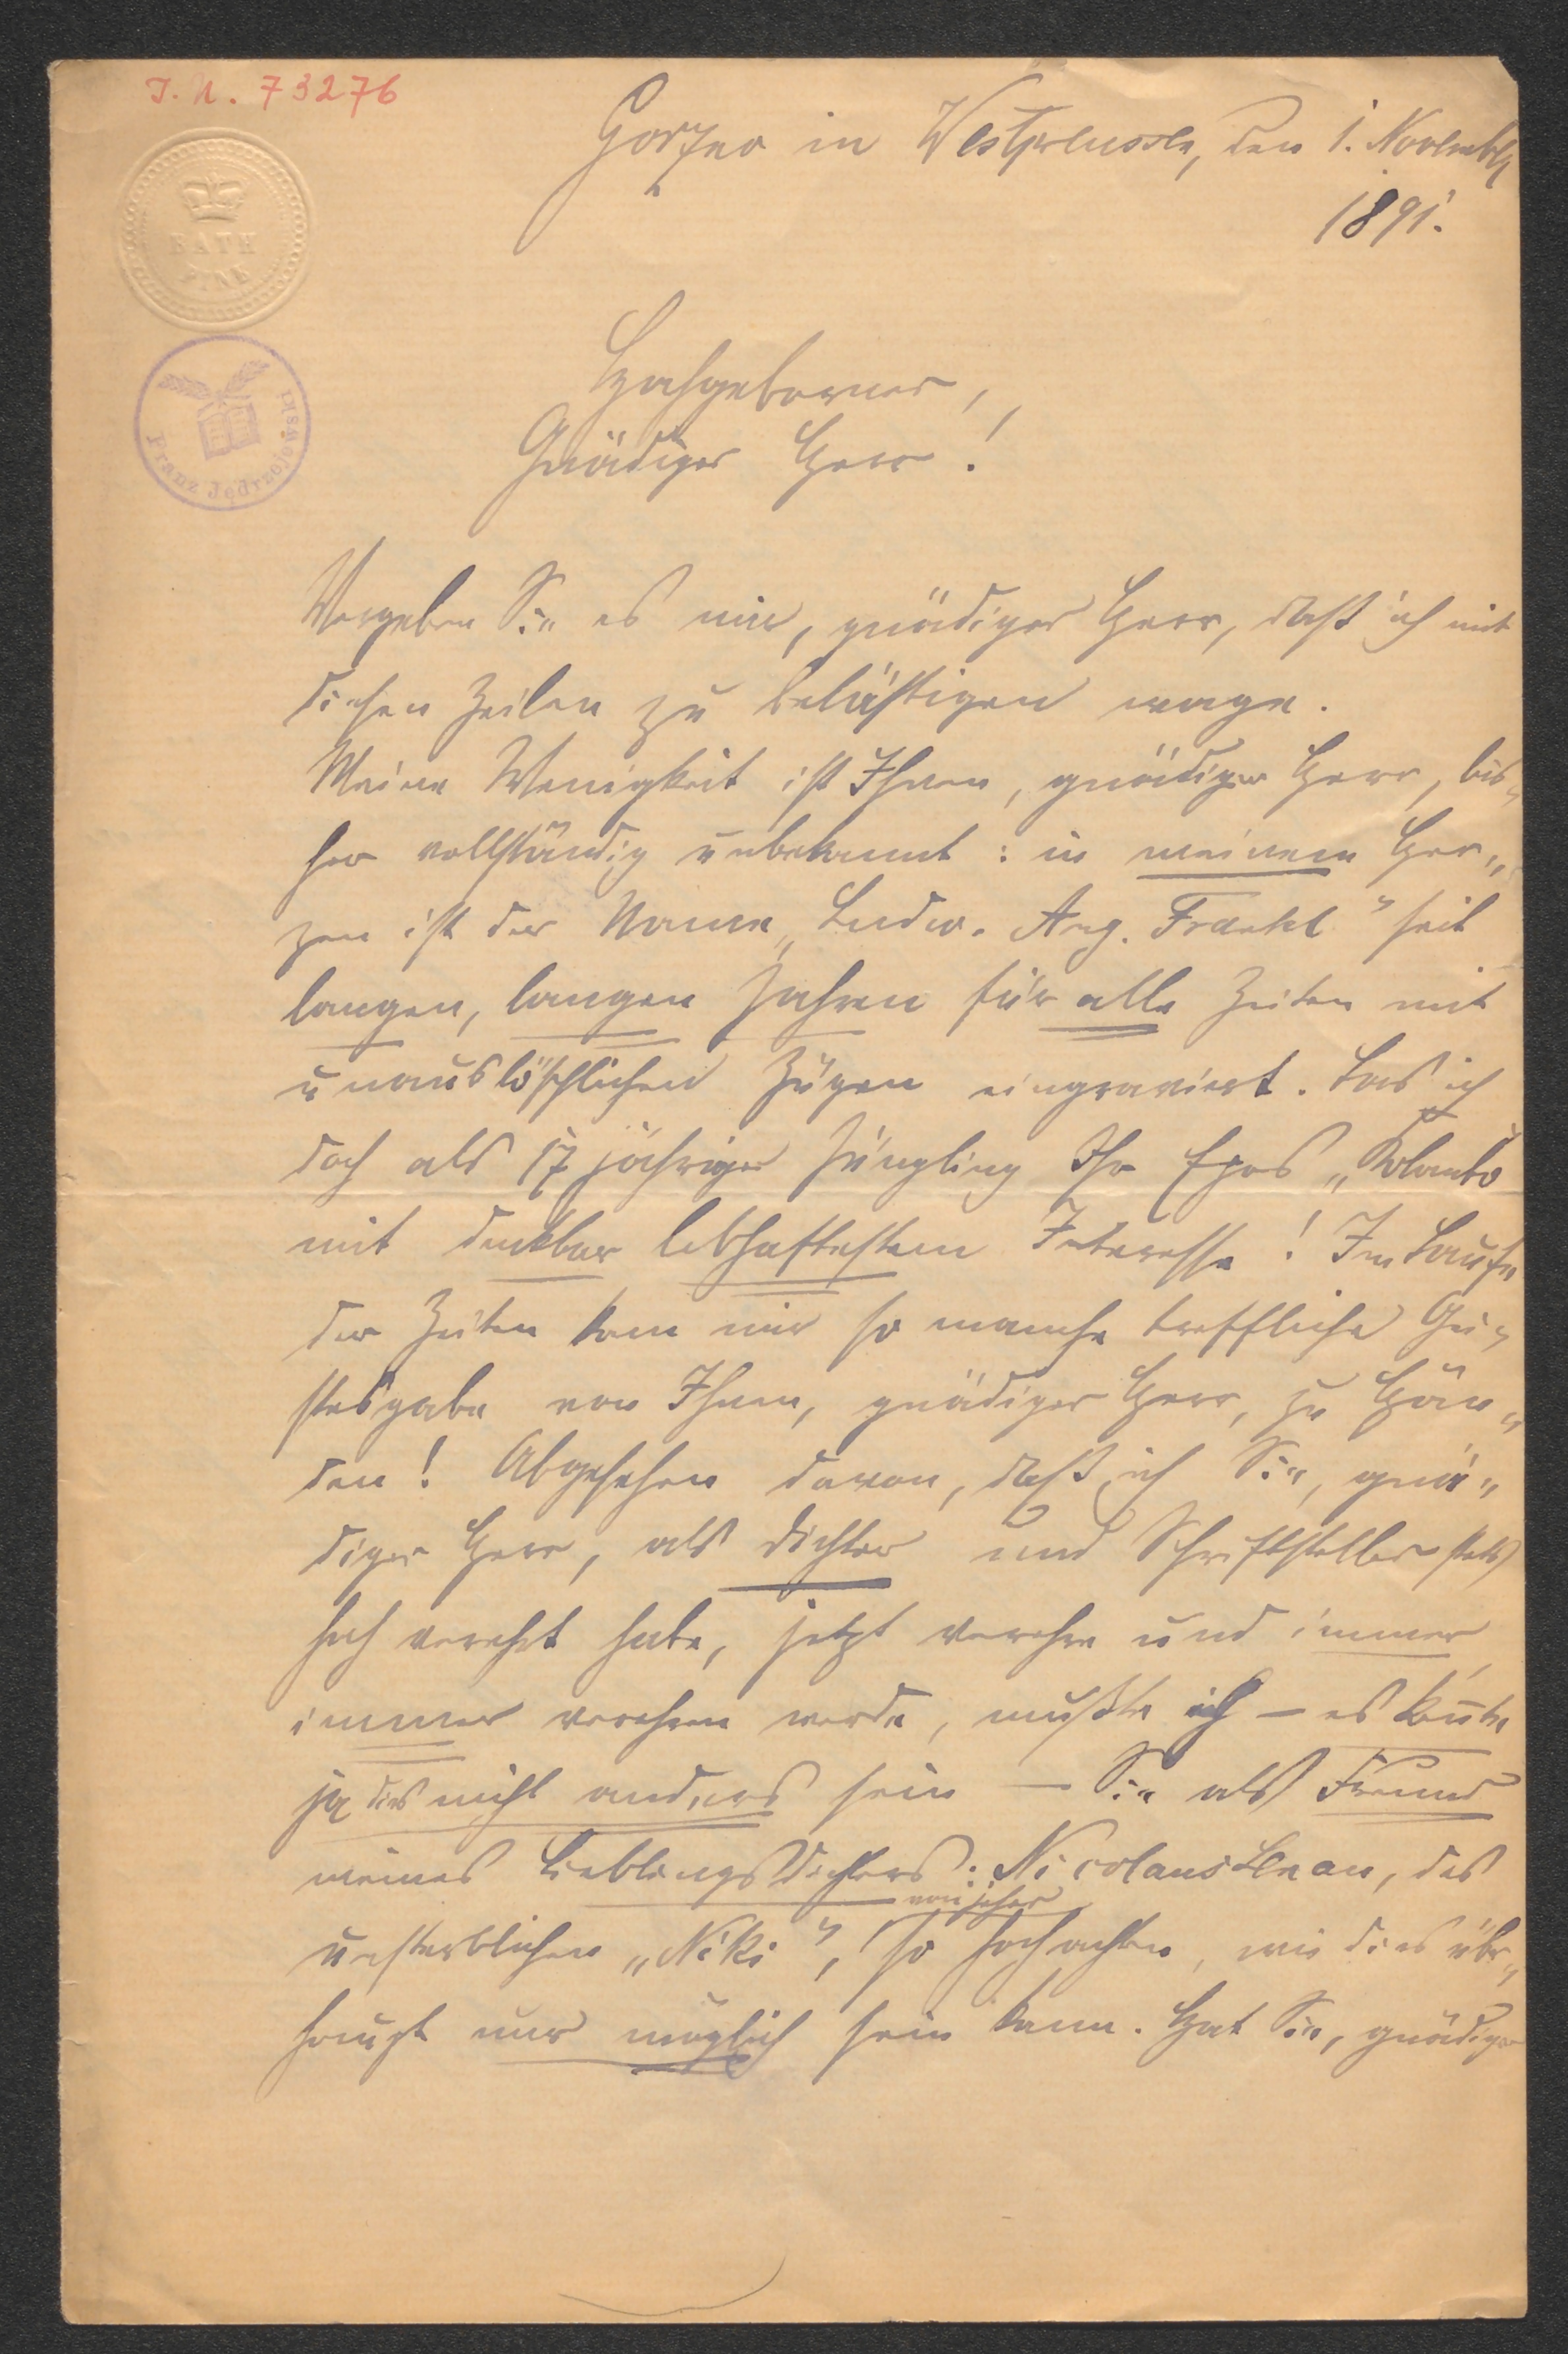 I. N. 73276
Gorzno in Westpreussen, den 1. November
1891.
BATH
Franz Jędrzejowski
Hochgeborner,
Gnädiger Herr!
Vergeben Sie es mir, gnädiger Herr, daß ich mit
diesen Zeilen zu belästigen wage.
Meine Wenigkeit ist Ihnen, gnädiger Herr, bis-
her vollständig unbekannt: in meinem Her-
zen ist der Name „Ludw. Aug. Frankl" seit
langen, langen Jahren für alle Zeiten mit
unauslöschlichen Zügen eingraviert. Las ich
doch als 17 jähriger Jüngling Ihr Epos „
mit denkbar lebhaftestem Interesse! Im Laufe
der Zeiten kam mir so manche treffliche Gei-
stesgabe von Ihnen, gnädiger Herr, zu Hän-
den! Abgesehen davon, daß ich Sie, gnä-
diger Herr, als Dichter und Schriftsteller stets
hoch verehrt habe, jetzt verehre und immer,
immer verehren werde, mußte ich – es konnte
ja dies nicht anders sein – Sie als Freund
meines Lieblingsdichters: Nicolaus Lenau, des
von jeher
unsterblichen „Niki", so hochachten, wie dies über-
haupt nur möglich sein kann. Hat Sie, gnädiger